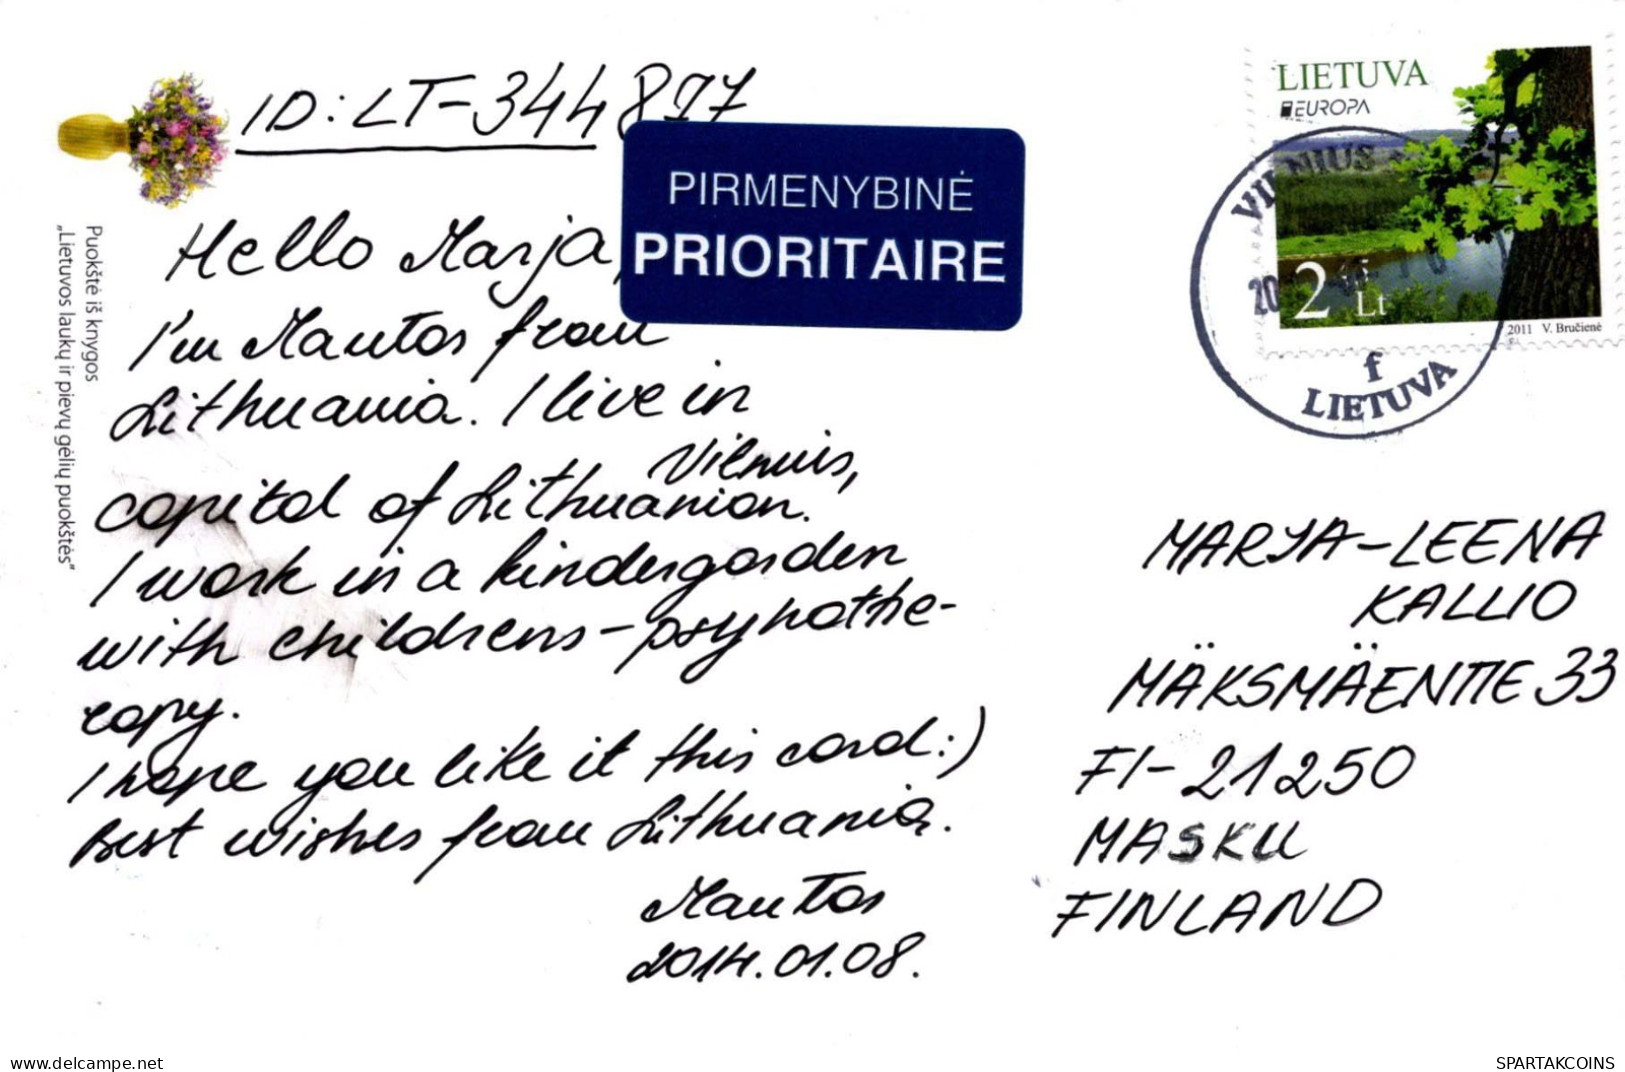 ID: LT-344877
PIRMENYBINĖ
PRIORITAIRE
Hello Marja,
I'm Mantas from
Lithuania. I live in
Vilnius,
capital of Lithuanian.
I work in a kindergarden
with childrens-psyhothe-
rapy.
I hope you like it this card:)
Best wishes from Lithuania.
Mantas
2014.01.08.
Puokštė iš knygos
„Lietuvos laukų ir pievų gėlių puokštės“
LIETUVA
EUROPA
2,45
Lt
2011 V. Bručienė
VILNIUS
20
f
LIETUVA
MARJA-LEENA
KALLIO
MÄKSMÄENTIE 33
FI-21250
MASKU
FINLAND
www.delcampe.net
SPARTAKCOINS